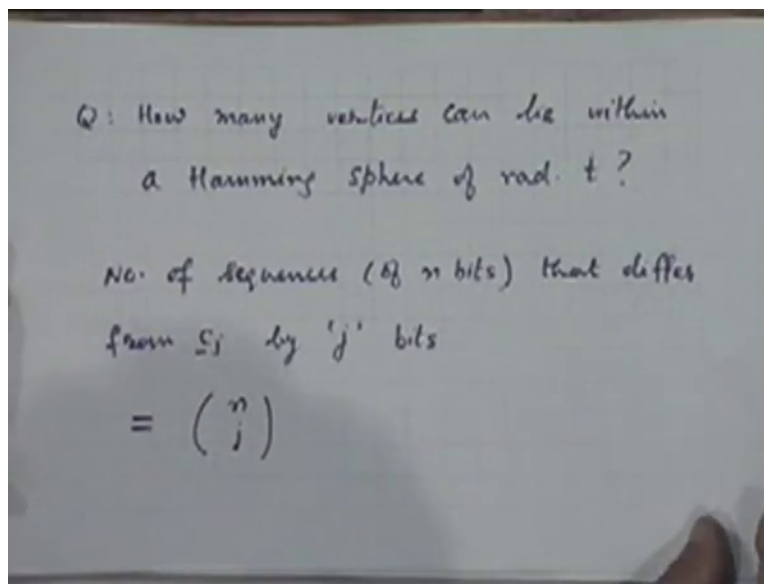 Q: How many vertices can lie within
a Hamming sphere of rad. t?
No. of sequences (of n bits) that differ
from c̲j by 'j' bits
= (n
j)